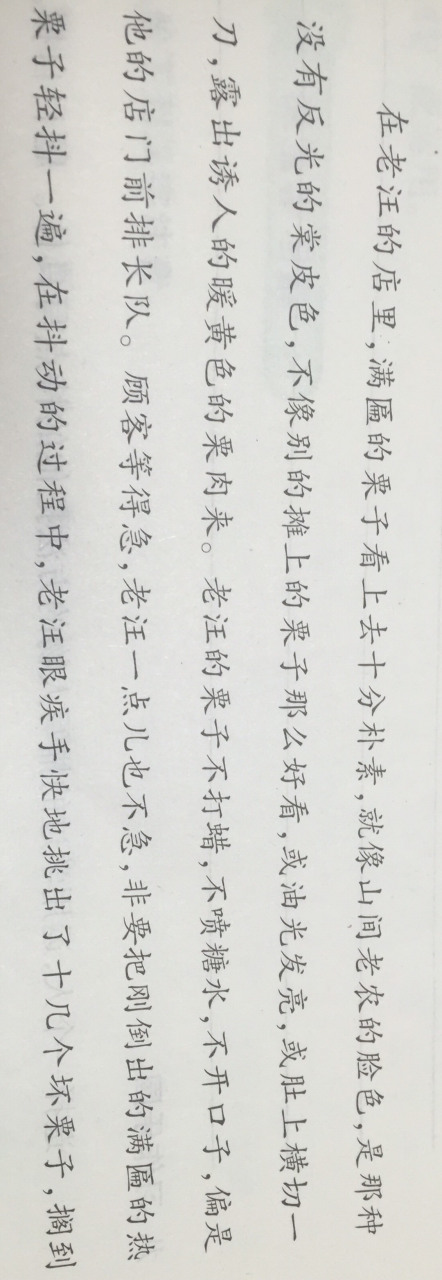 在老汪的店里,满匾的栗子看上去十分朴素,就像山间老农的脸色,是那种
没有反光的棠皮色,不像别的摊上的栗子那么好看,或油光发亮,或肚上横切一
刀,露出诱人的暖黄色的栗肉来。老汪的栗子不打蜡,不喷糖水,不开口子,偏是
他的店门前排长队。顾客等得急,老汪一点儿也不急,非要把刚倒出的满匾的热
栗子轻抖一遍,在抖动的过程中,老汪眼疾手快地挑出了十几个坏栗子,搁到